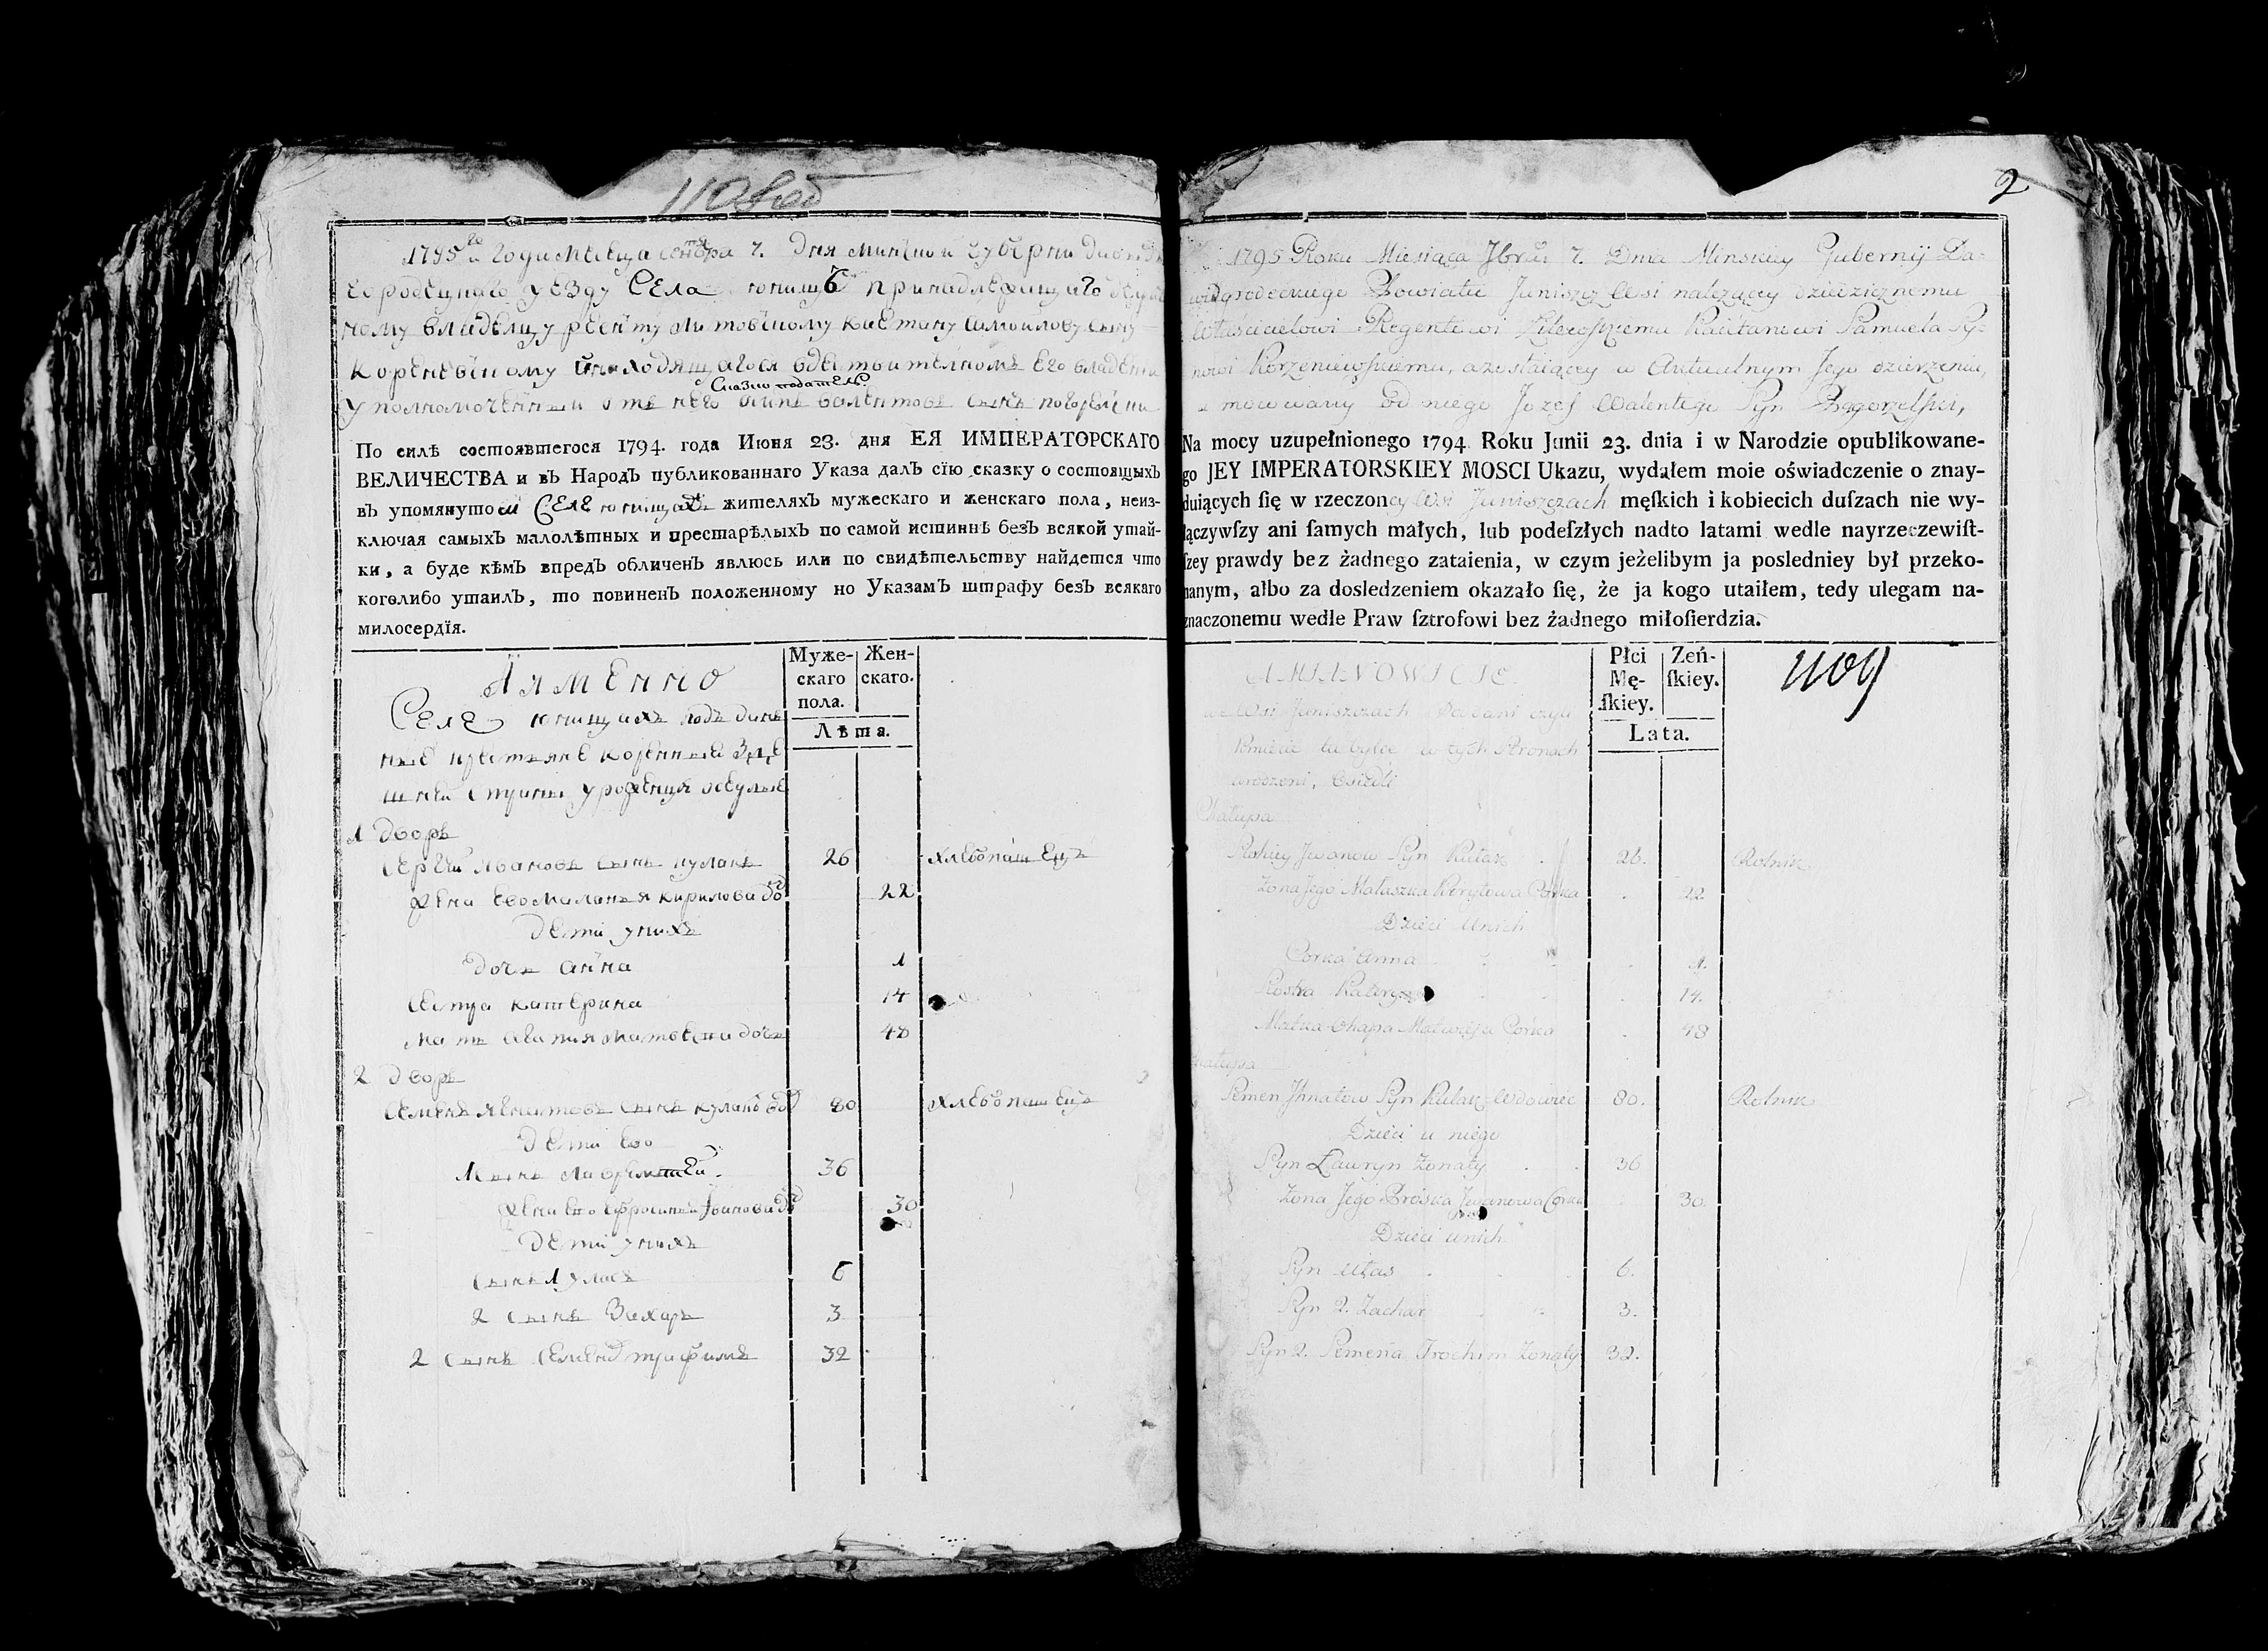 1795го года месеца сентбра 7. дня минскои губерни давид
городецкаго уезду Села юнищъ принадлежищаго
ному владелцу регенту литовскому каетану самоилову сыну
кореневскому инаходящагося вдеиствителномъ его владени
Сказкоподатель
уполномоченныи отъ него валентовъ сынъ погорелски
По силѣ состоявшегося 1794. года Июня 23. дня ЕЯ ИМПЕРАТОРСКАГО
ВЕЛИЧЕСТВА и въ Народъ публикованнаго Указа далъ сїю сказку о состоящыхъ
въ упомянутом Селе юнищахъ жителяхъ мужескаго и женскаго пола, неиз-
ключая самыхъ малолѣтных и престарѣлыхъ по самой истиннѣ безъ всякой утай-
ки, а буде кѣмъ впредъ обличенъ явлюсь или по свидѣтельству найдется что
коголибо утаилъ, то повиненъ положенному по Указамъ штрафу безъ всякаго
милосердїя.
Аименно
Муже-
скаго
пола.
Жен-
скаго.
Лѣта.
Селе юнищахъ подъдан
ные крестьяне коренные зде
шнеи уроженця
1 дворъ
Сергеи Ивановъ сынъ кулакъ 26 хлебопашецъ
жена ево маланья кирилова до 22
дети унихъ
дочь анна 1
сестра катерина 14
мать агапия матвеева дочь 48
2 дворъ
Семенъ игнатовъ сынъ кулакъ вдо 80 хлебопашецъ
дети ево
1 сынъ 36
жена ево ефросинья иванова до 30
дети унихъ
сынъ 1 уласъ 6
2 сынъ Захаръ 3
2 сынъ Семена трифимъ 32
2
1795 Roku Miesiąca 7bra 7. Dnia Minskiey Gubernij Da-
widgrodeckiego Powiatu Juniszcz Wsi należącey dziedzicznemu
Właścicielowi Regentowi Litewskiemu Kaietanowi Samuela Sy-
nowi Korzeniewskiemu, azostaiącey w Aktualnym Jego dzierżeniu,
od niego Jozef Walentego Syn Pogorzelski,
Na mocy uzupełnionego 1794 Roku Junii 23. dnia i w Narodzie opublikowane-
go JEY IMPERATORSKIEY MOSCI Ukazu, wydałem moie oświadczenie o znay-
duiących ſię w rzeczoney Wsi Juniszczach męſkich i kobiecich duſzach nie wy-
łączywſzy ani ſamych małych, lub podeſzłych nadto latami wedle nayrzeczewiſt-
ſzey prawdy bez żadnego zataienia, w czym jeżelibym ja posledniey był przeko-
nanym, albo za dosledzeniem okazało ſię, że ja kogo utaiłem, tedy ulegam na-
znaczonemu wedle Praw ſztrofowi bez żadnego miłoſierdzia.
AMIANOWICIE
Płci
Mę-
ſkiey.
Zeń-
ſkiey.
Lata.
we Wsi Juniszczach Poddani czyli
Kmiecie tubylce w tych Stronach
urodzeni, Osiedli
Chałupa
Serhiey Jwanow Syn Kułak 26. Rolnik
Zona Jego Małaszka Kiryłowa Corka 22
Dzieci unich
Corka Anna 1.
Siostra Kateryna 14.
Matka Ohapa Matwieja Corka 48
Chałupa
Semen Jhnatow Syn Kułak Wdowiec 80. Rolnik
Dzieci u niego
Syn Ławryn żonaty 36
Zona Jego Proiska Jwanowa Corka 30.
Dzieci unich
Syn Ułas 6.
Syn 2. Zachar 3.
Syn 2. Semena Trochim żonaty 32.